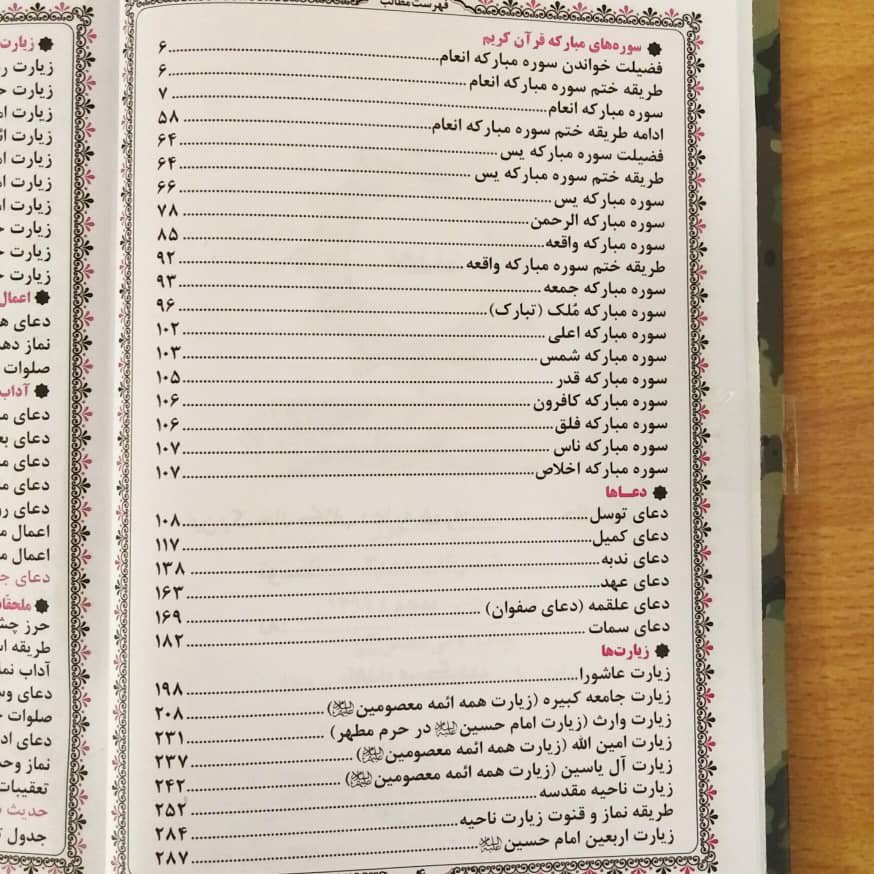 فهرست مطالب
سوره‌های مبارکه قرآن کریم
فضیلت خواندن سوره مبارکه انعام ۶
طریقه ختم سوره مبارکه انعام ۶
سوره مبارکه انعام ۷
ادامه طریقه ختم سوره مبارکه انعام ۵۸
فضیلت سوره مبارکه یس ۶۴
طریقه ختم سوره مبارکه یس ۶۴
سوره مبارکه یس ۶۶
سوره مبارکه الرحمن ۷۸
سوره مبارکه واقعه ۸۵
طریقه ختم سوره مبارکه واقعه ۹۲
سوره مبارکه جمعه ۹۳
سوره مبارکه مُلک (تبارک) ۹۶
سوره مبارکه اعلی ۱۰۲
سوره مبارکه شمس ۱۰۳
سوره مبارکه قدر ۱۰۵
سوره مبارکه کافرون ۱۰۶
سوره مبارکه فلق ۱۰۶
سوره مبارکه ناس ۱۰۷
سوره مبارکه اخلاص ۱۰۷
دعـاها
دعای توسل ۱۰۸
دعای کمیل ۱۱۷
دعای ندبه ۱۳۸
دعای عهد ۱۶۳
دعای علقمه (دعای صفوان) ۱۶۹
دعای سمات ۱۸۲
زیارت‌ها
زیارت عاشورا ۱۹۸
زیارت جامعه کبیره (زیارت همه ائمه معصومین) ۲۰۸
زیارت وارث (زیارت امام حسین در حرم مطهر) ۲۳۱
زیارت امین الله (زیارت همه ائمه معصومین) ۲۳۷
زیارت آل یاسین (زیارت همه ائمه معصومین) ۲۴۲
زیارت ناحیه مقدسه ۲۵۲
طریقه نماز و قنوت زیارت ناحیه ۲۸۴
زیارت اربعین امام حسین ۲۸۷
زیارت
زیارت
زیارت
زیارت
زیارت
زیارت
زیارت
زیارت
زیارت
زیارت
زیارت
اعمال
دعای
نماز
صلوات
آداب
دعای
دعای
دعای
دعای
دعای
اعمال
اعمال
دعای
حرز
طریقه
آداب
دعای
صلوات
دعای
نماز
تعقیبات
حدیث
جدول